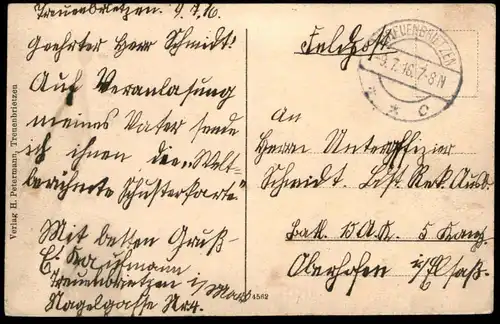 Treuenbrietzen. 9.7.16.
Geehrter Herr Schmidt!
Auf Veranlasung
meines Vater sende
ich ihnen die „Welt-
berühmte Schusterkarte“
Mit besten Gruß
E.
Treuenbrietzen i/Mark
Nagelgasse Nr 4.
Verlag H. Petermann, Treuenbrietzen
4562
Feldpost.
TREUENBRIETZEN
9.7.16.7-8N
* c
An
Herrn Unteroffizier
Schmidt.
Batl. A.K. 5
Oberhofen i/Elsaß.